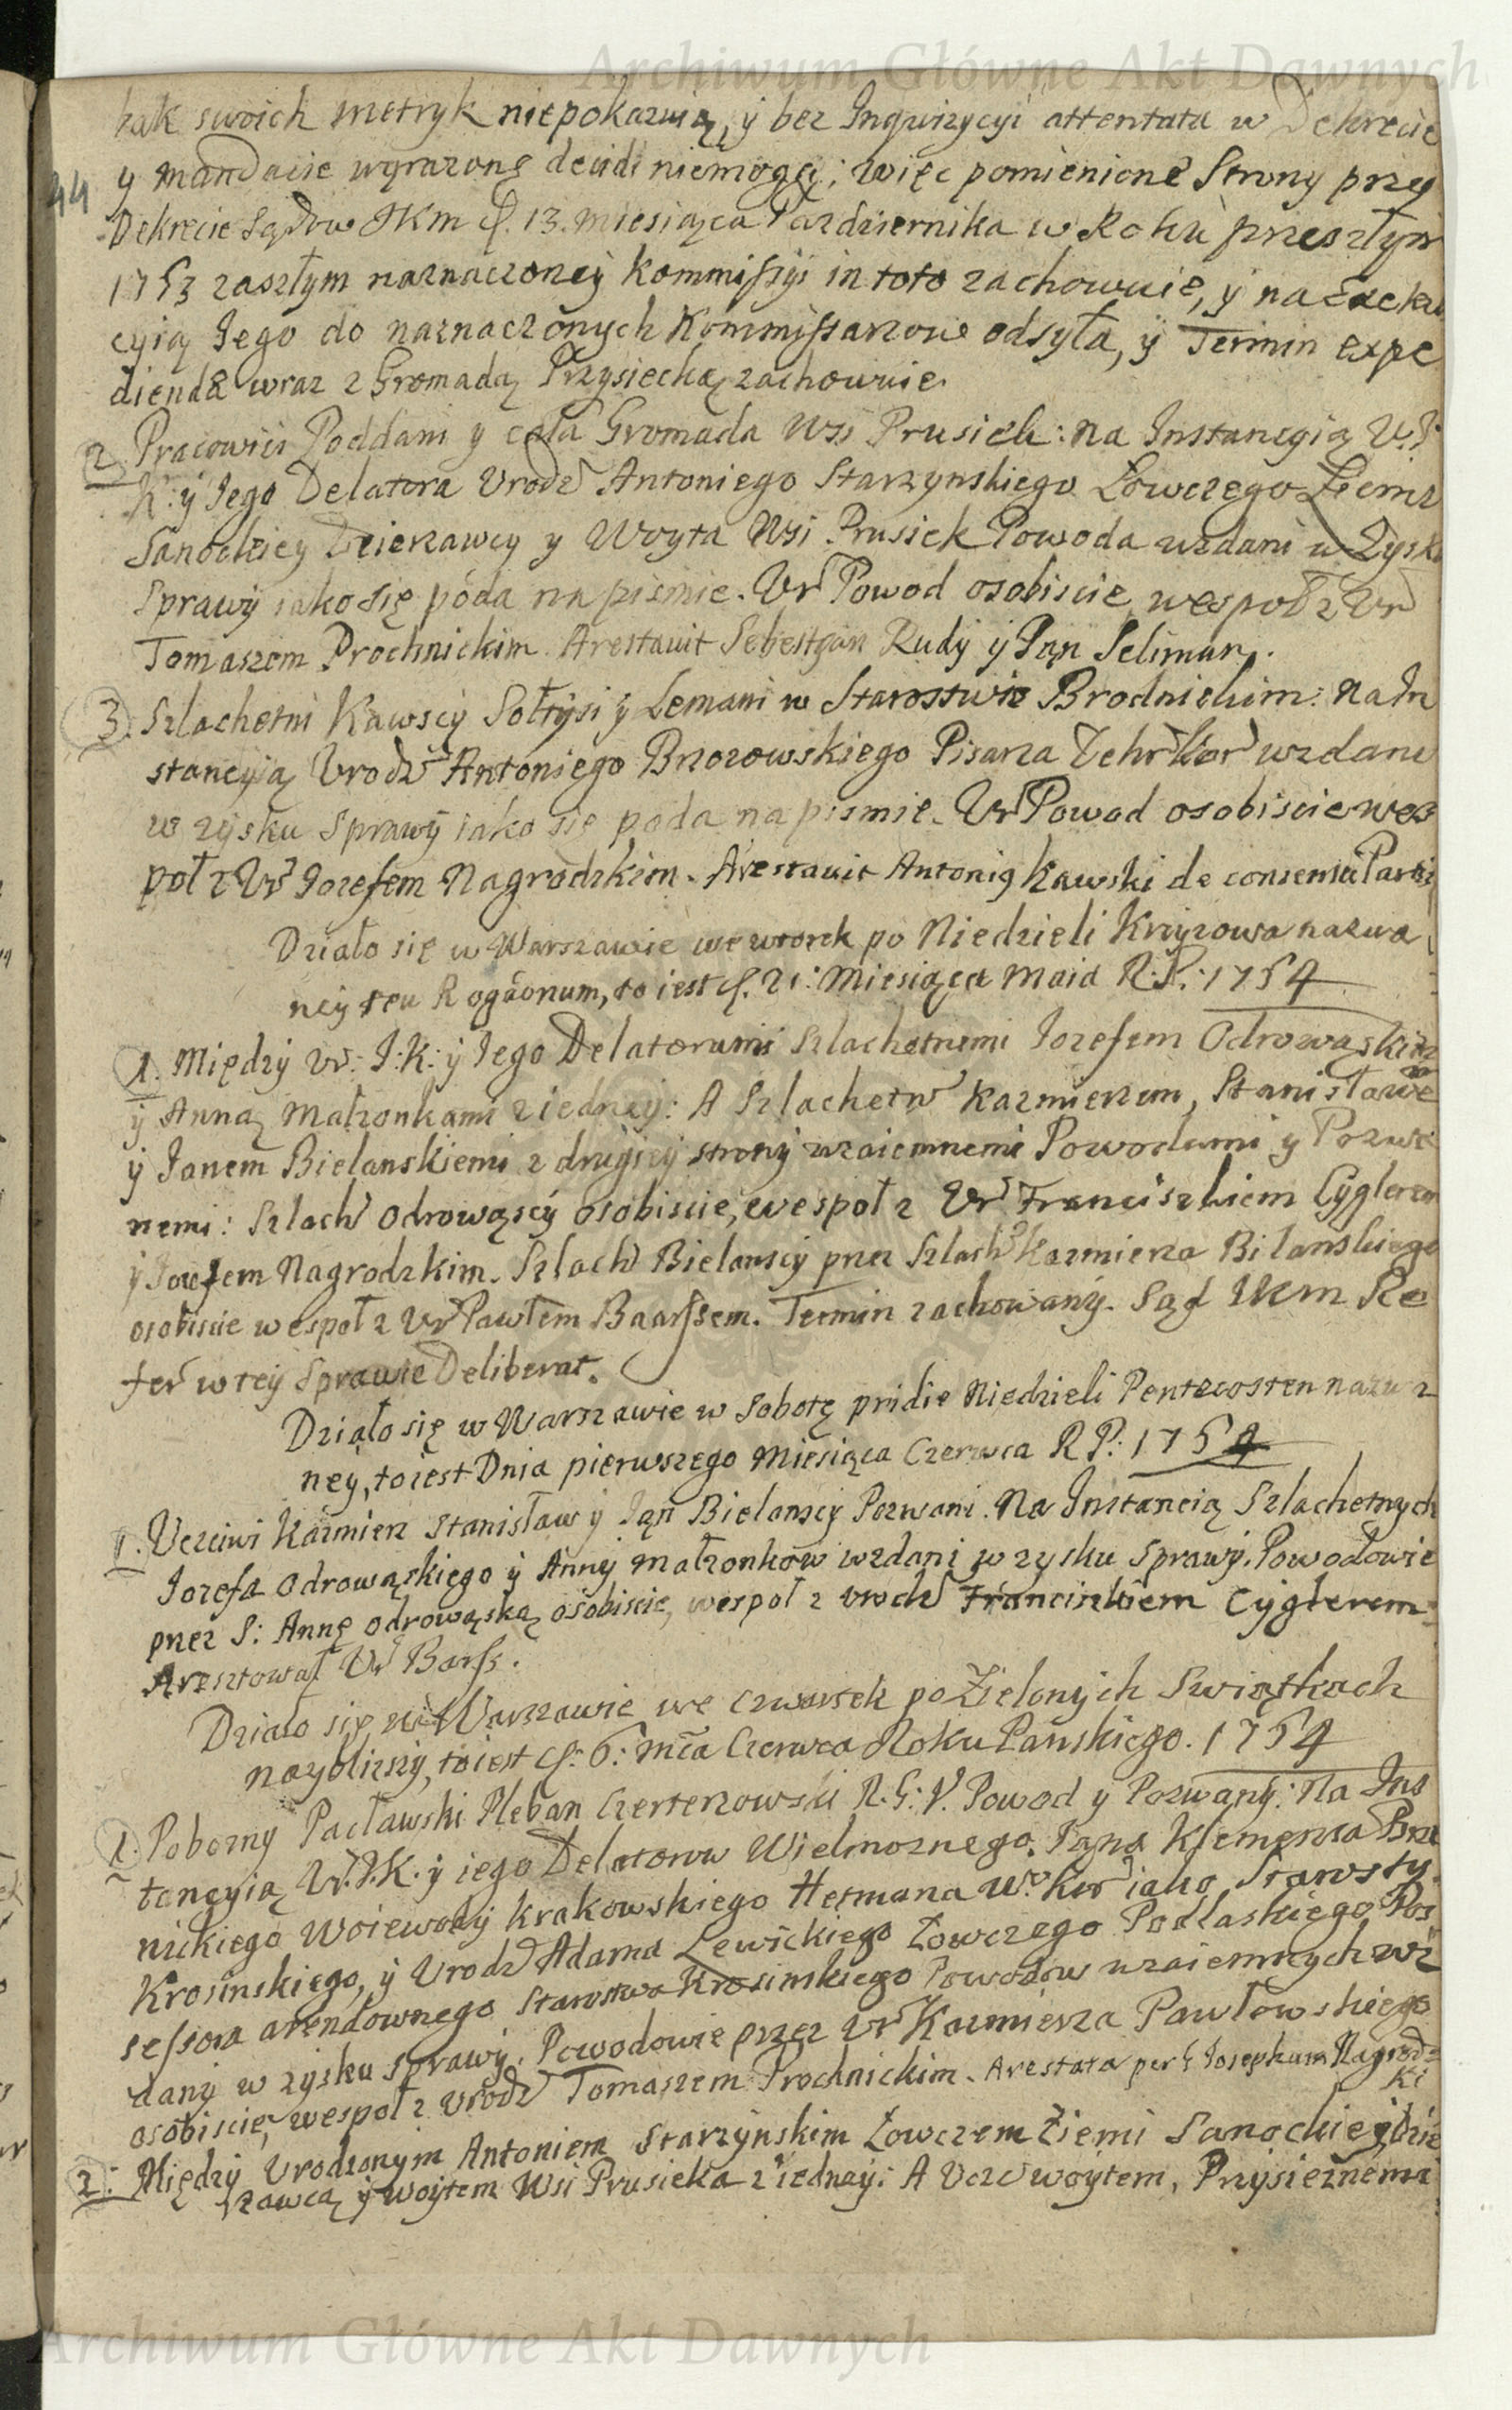 Archiwum Główne Akt Dawnych
44
iak swoich metryk niepokazuią, y bez Inqwizycyi attentata w Dekrecie
y mandacie wyrazone decidi niemogą; więc pomienione Strony przy
Dekrecie Sądow JKM d. 13. miesiąca Pazdziernika w Roku przeszłym
1753 zaszłym naznaczoney Kommissyi in toto zachowuie, y na Exeku
cyią Jego do naznaczonych Kommissarzow odsyła, y Termin expe
diendæ wraz z Gromadą Przysiecką zachowuie.
2. Pracowici Poddani y cała Gromada Wsi Prusiek: na Instancyią U. J.
K: y Jego Delatora Urodz Antoniego Starzynskiego Łowczego Ziemi
Sanockiey Dzierzawcy y Woyta Wsi Prusiek Powoda wzdani w Zysku
Sprawy iako się póda na pismie. Ur Powod osobiscie wespoł z Ur
Tomaszem Prochnickim. Arestavit Sebestyan Rudy y Jan Seliman.
3. Szlachetni Kawscy Sołtysi y Lemani w Starostwie Brodnickim: na In
stancyią Urodz Antoniego Brzozowskiego Pisarza Dekr Kor wzdani
w zysku Sprawy iako się poda na pismie. Ur Powod osobiscie wes
poł z Ur Jozefem Nagrodzkim. Arestavit Antoni Kawski de consensu Partis
Działo się w Warszawie we wtorek po Niedzieli Krzyzowa nazwa
ney seu Rogaonum, to iest d. 21: Miesiąca Maia R. P. 1754
1. Między Ur: J: K: y Jego Delatorami Szlachetnemi Jozefem Odrowąskim
y Anną Małzonkami z iedney: A Szlachetn Kazmierzem, Stanisławe
y Janem Bielanskiemi z drugiey strony wzaiemnemi Powodami y Pozwa
nemi: Szlach Odrowąscy osobiscie, wespoł z Ur Franciszkiem Cyglerem
y Jozefem Nagrodzkim. Szlach Bielanscy przez Szlach Kazmierza Bilanskiego
osobiscie wespoł z Ur Pawłem Baarssem. Termin zachowany. Sąd JKM Re
fer w tey Sprawie Deliberat.
Działo się w Warszawie w Sobotę pridie Niedzieli Pentecosten nazwa
ney, to iest Dnia pierwszego Miesiąca Czerwca R P: 1754
1. Uczciwi Kazmierz Stanisław y Jan Bielanscy Pozwani. Na Instancią Szlachetnych
Jozefa Odrowąskiego y Anny Małzonkow wzdani w zysku Sprawy. Powodowie
przez S: Annę Odrowąską osobiscie, wespoł z Urodz Franciszkiem Cyglerem
Aresztował Ur Barss.
Działo się w Warszawie we Czwartek po Zielonych Swiątkach
nayblizszy, to iest d. 6: mca Czerwca Roku Panskiego. 1754
1. Pobozny Pacławski Pleban Czerterzowski R. G: V. Powod y Pozwany: na Ins
tancyią U. J. K. y iego Delatorow Wielmoznego Pana Klemensa Bra
nickiego Woiewody Krakowskiego Hetmana W. Kor iako Starosty
Krosinskiego, y Urodz Adama Lewickiego Łowczego Podlaskiego Pos
sessora arendownego Starostwa Krosinskiego Powodow wzaiemnych wz
dany w zysku sprawy. Powodowie przez Ur Kazmierza Pawłowskiego
osobiscie, wespoł z Urodz Tomaszem Prochnickim. Arestata per Josephum Nagrodz=
ki
2. Między Urodzonym Antoniem Starzynskim Łowczem Ziemi Sanockiey dzie
rzawcą y woytem Wsi Prusieka z iedney: A Uczc woytem, Przysieznemi
Archiwum Główne Akt Dawnych